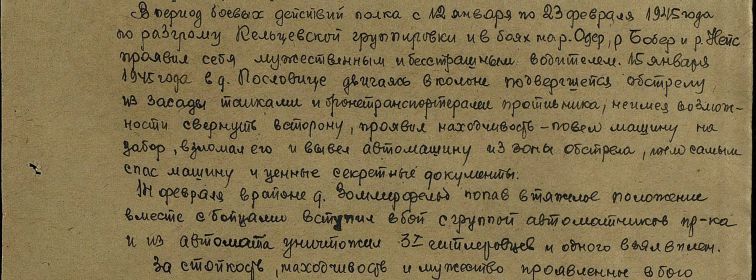 В период боевых действий полка с 12 января по 23 февраля 1945 года
по разгрому Кельцевской группировки и в боях на р. Одер, р Бобер и р. Нейс
проявил себя мужественным и бесстрашным водителем. 15 января
1945 года в д. Пословице двигаясь в колоне подвергшейся обстрелу
из засады танками и бронетранспортерами противника, не имея возмож-
ности свернуть в сторону, проявил находчивость - повел машину на
забор, взломал его и вывел автомашину из зоны обстрела, тем самым
спас машину и ценные секретные документы.
14 февраля в районе д. Зоммерфельд попав в тяжелое положение
вместе с бойцами вступил в бой с группой автоматчиков пр-ка
и из автомата уничтожил 3х гитлеровцев и одного взял в плен.
За стойкость, находчивость и мужество проявленные в бою